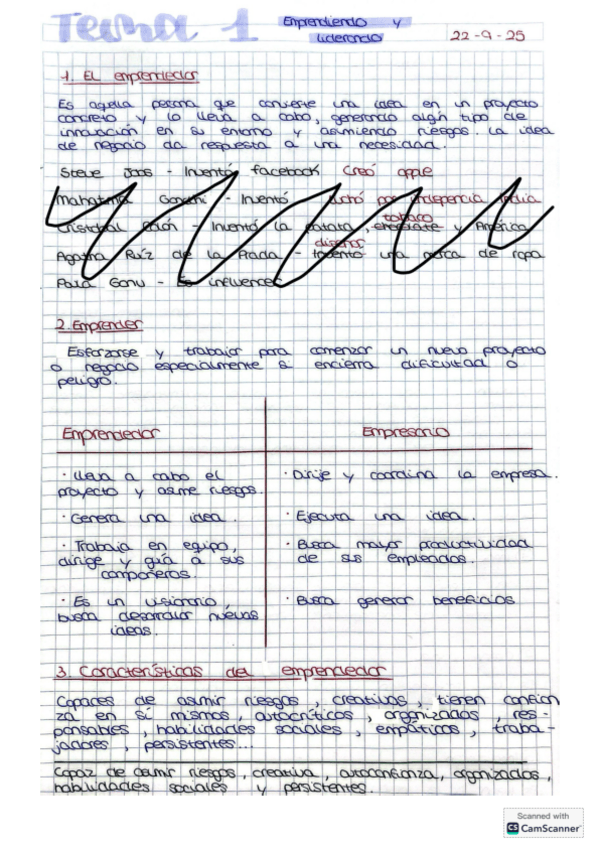 Tema 1 Emprendiendo y
liderando
22-9-25
1. El emprendedor
Es aquella persona que convierte una idea en un proyecto
concreto y lo lleva a cabo, generando algún tipo de
innovación en su entorno y asumiendo riesgos. La idea
de negocio da respuesta a una necesidad.
Steve Jobs - Inventó facebook Creó apple
Mahatma Gandhi - Inventó luchó por India
tabaco
Cristobal Colón - Inventó la patata, chocolate y América
diseños
Agatha Ruíz de la Prada - Inventó una marca de ropa
- Es influencer
2. Emprender
Esforzarse y trabajar para comenzar un nuevo proyecto
o negocio especialmente si encierra dificultad o
peligro.
Emprendedor Empresario
· Lleva a cabo el
proyecto y asume riesgos.
· Dirije y coordina la empresa.
· Genera una idea.
· Ejecuta una idea.
· Trabaja en equipo,
dirige y guía a sus
compañeros.
· Busca mayor productividad
de sus empleados.
· Es un visionario,
busca desarrollar nuevas
ideas.
· Busca generar beneficios
3. Características del emprendedor
Capaces de asumir riesgos, creativos, tienen confian
za en sí mismos, autocríticos, organizados, res-
ponsables, habilidades sociales, empáticos, traba-
jadores, persistentes...
Capaz de asumir riesgos, creativa, autoconfianza, organizados,
habilidades sociales y persistentes.
Scanned with
CS CamScanner